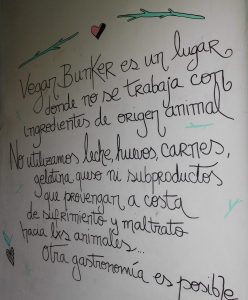 Vegan Bunker es un lugar
donde no se trabaja con
ingredientes de origen animal
No utilizamos leche, huevos, carnes,
gelatina, queso ni subproductos
que provengan a costa
de sufrimiento y maltrato
hacia lxs animales...
Otra gastronomía es posible